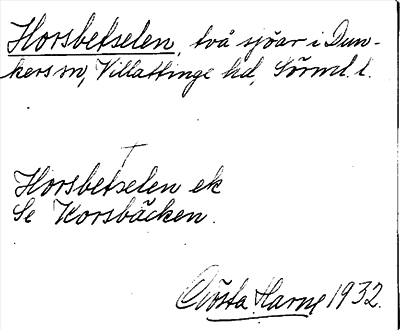 Horsbetselen, två sjöar i Dun-
kers sn, Villåttinge hd, Sörml. l.
Horsbetselen ek
Se Korsbäcken.
Gösta Harne 1932.